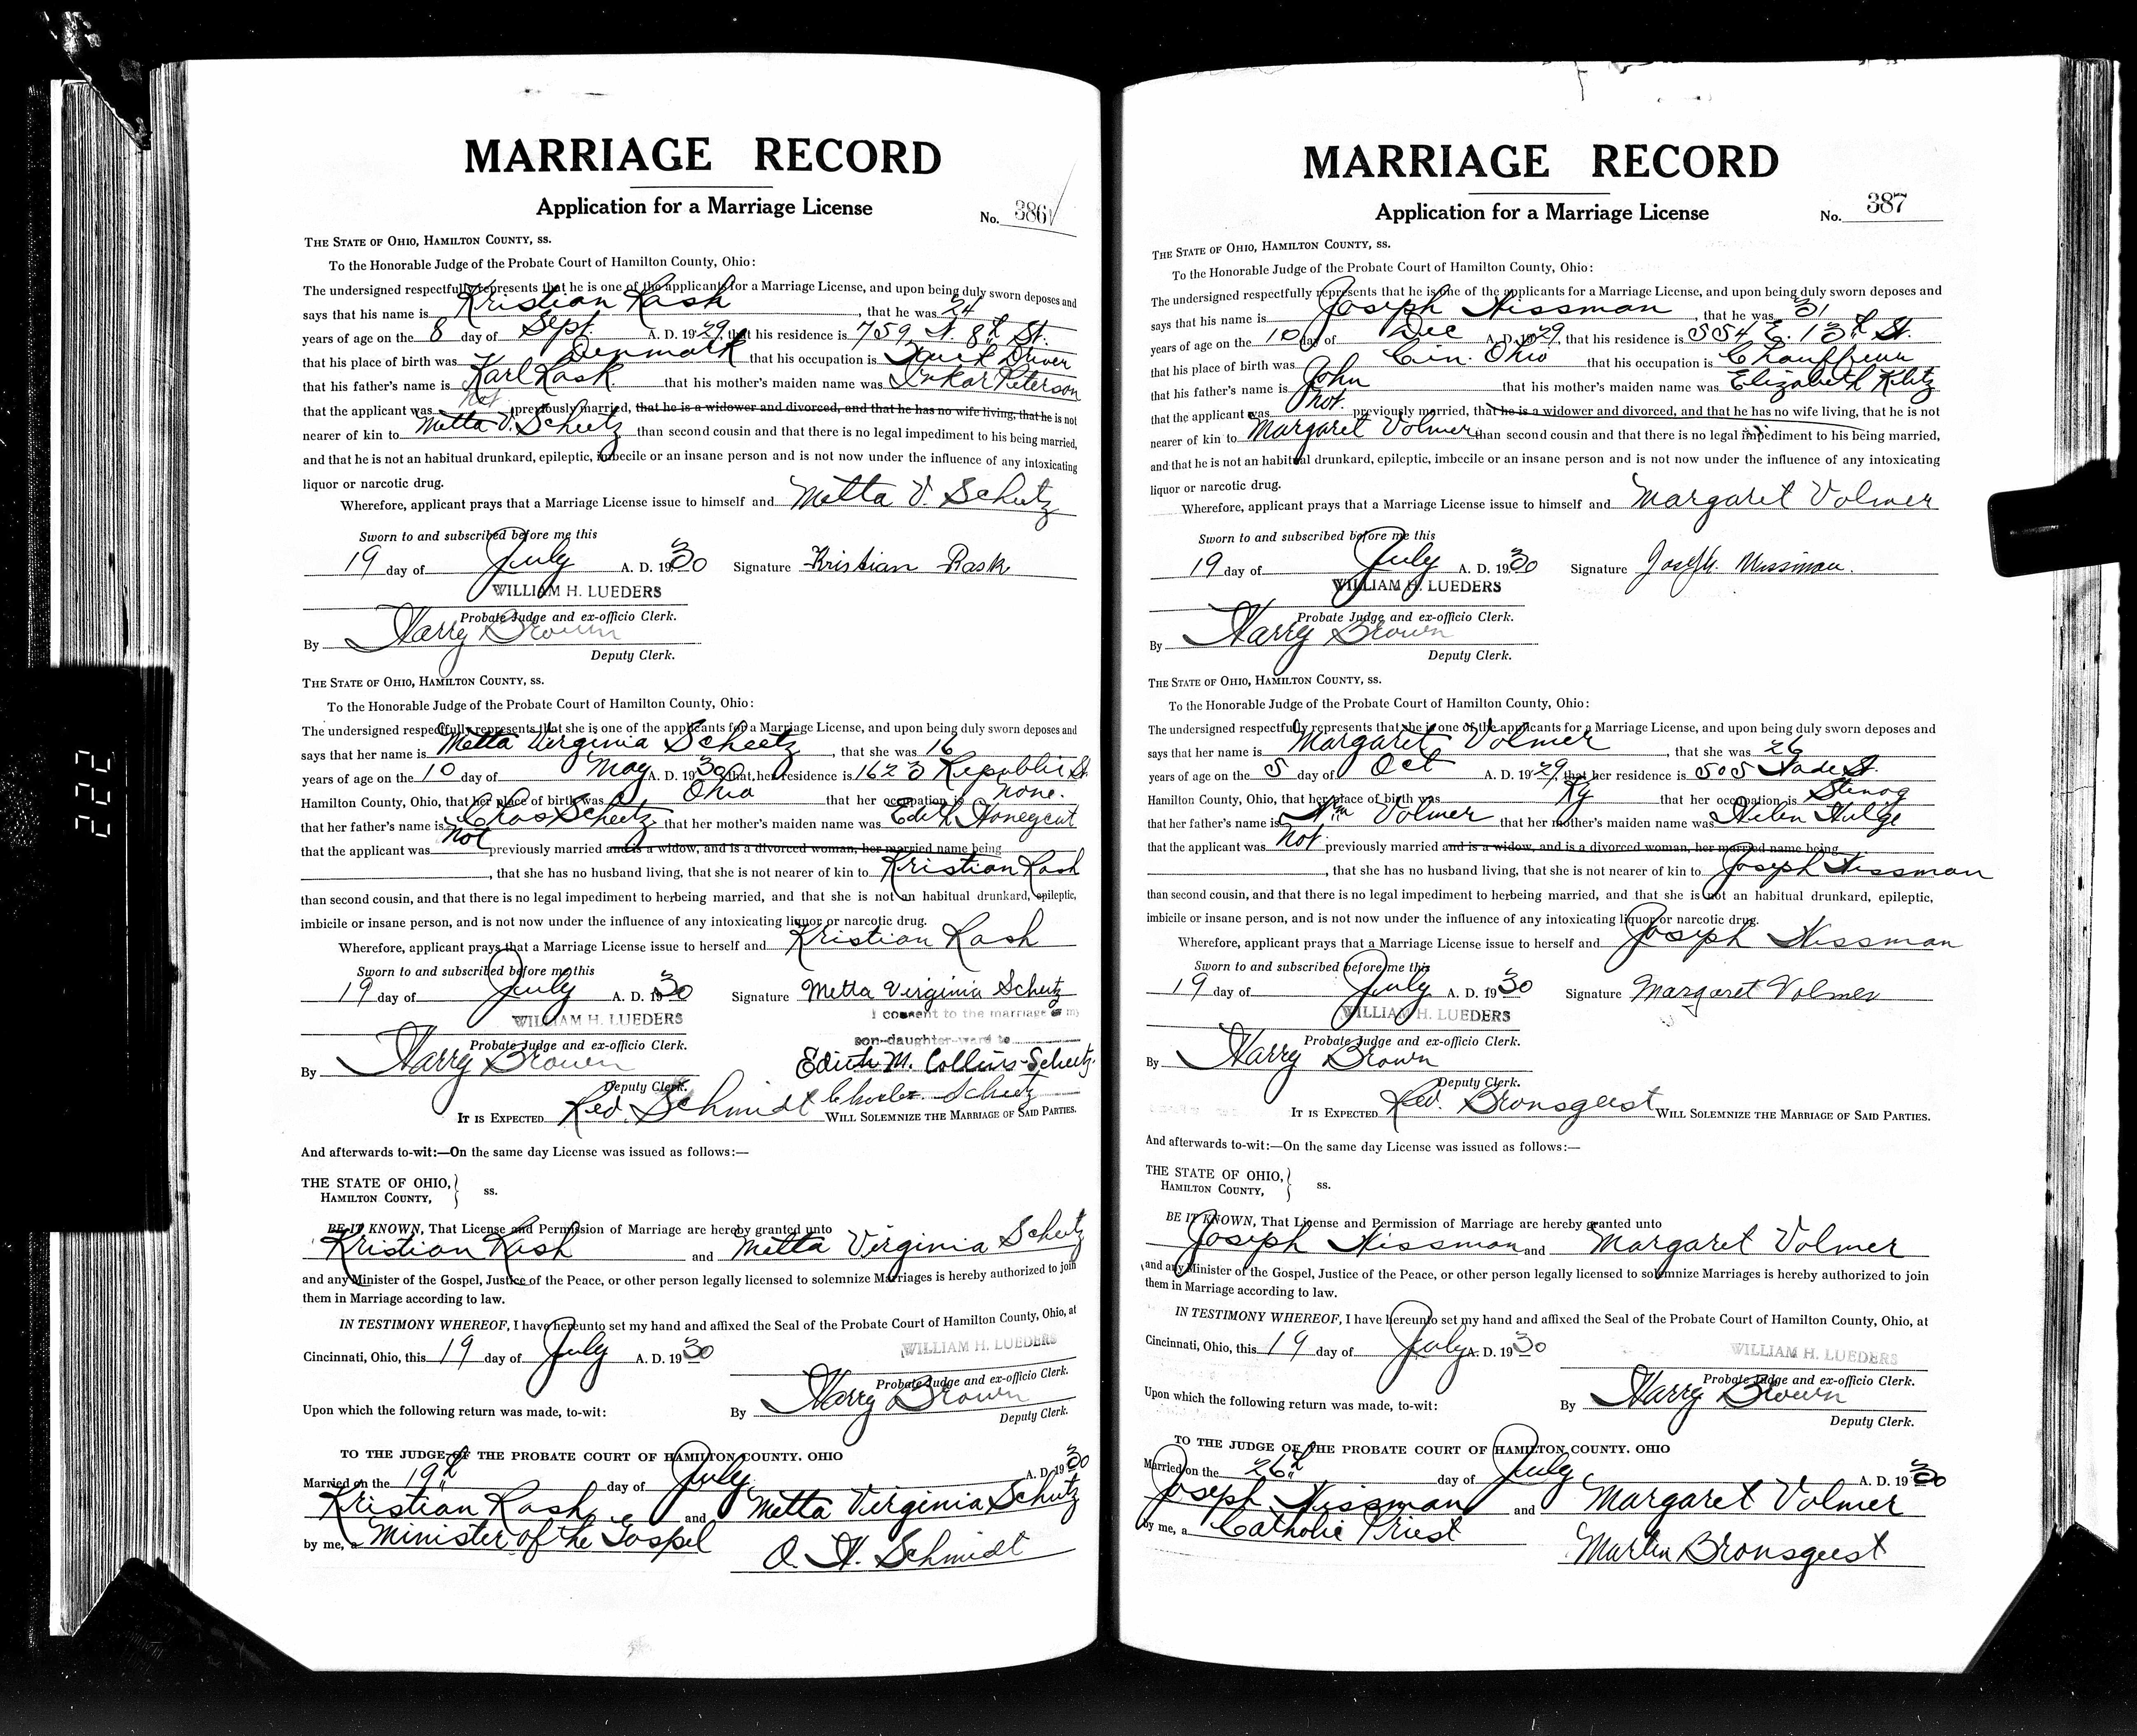 MARRIAGE RECORD
Application for a Marriage License
No. 386
THE STATE OF OHIO, HAMILTON COUNTY, ss.
To the Honorable Judge of the Probate Court of Hamilton County, Ohio:
The undersigned respectfully represents that he is one of the applicants for a Marriage License, and upon being duly sworn deposes and
says that his name is Kristian Rask, that he was 24
years of age on the 8 day of Sept. A. D. 1929, that his residence is 759 N. 8th St.
that his place of birth was Denmark that his occupation is Truck Driver
that his father's name is Karl Rask that his mother's maiden name was Peterson
that the applicant was not previously married, that he is a widower and divorced, and that he has no wife living, that he is not
nearer of kin to Metta V. Scheetz than second cousin and that there is no legal impediment to his being married,
and that he is not an habitual drunkard, epileptic, imbecile or an insane person and is not now under the influence of any intoxicating
liquor or narcotic drug.
Wherefore, applicant prays that a Marriage License issue to himself and Metta V. Scheetz
Sworn to and subscribed before me this
19 day of July A. D. 1930 Signature Kristian Rask
WILLIAM H. LUEDERS
Probate Judge and ex-officio Clerk.
By Harry Brown
Deputy Clerk.
THE STATE OF OHIO, HAMILTON COUNTY, ss.
To the Honorable Judge of the Probate Court of Hamilton County, Ohio:
The undersigned respectfully represents that she is one of the applicants for a Marriage License, and upon being duly sworn deposes and
says that her name is Metta Virginia Scheetz, that she was 16
years of age on the 10 day of May A. D. 1930, that her residence is 1623 Republic St.
Hamilton County, Ohio, that her place of birth was Ohio that her occupation is none.
that her father's name is Chas Scheetz that her mother's maiden name was Edith Honeycut
that the applicant was not previously married and is a widow, and is a divorced woman, her married name being
, that she has no husband living, that she is not nearer of kin to Kristian Rask
than second cousin, and that there is no legal impediment to herbeing married, and that she is not an habitual drunkard, epileptic,
imbicile or insane person, and is not now under the influence of any intoxicating liquor or narcotic drug.
Wherefore, applicant prays that a Marriage License issue to herself and Kristian Rask
Sworn to and subscribed before me this
19 day of July A. D. 1930 Signature Metta Virginia Scheetz
WILLIAM H. LUEDERS I consent to the marriage of my
Probate Judge and ex-officio Clerk. son-daughter-ward to
By Harry Brown Edith M. Collins-Scheetz.
Deputy Clerk. Charles Scheetz
IT IS EXPECTED Rev. Schmidt WILL SOLEMNIZE THE MARRIAGE OF SAID PARTIES.
And afterwards to-wit:—On the same day License was issued as follows:—
THE STATE OF OHIO,
HAMILTON COUNTY, ss.
BE IT KNOWN, That License and Permission of Marriage are hereby granted unto
Kristian Rask and Metta Virginia Scheetz
and any Minister of the Gospel, Justice of the Peace, or other person legally licensed to solemnize Marriages is hereby authorized to join
them in Marriage according to law.
IN TESTIMONY WHEREOF, I have hereunto set my hand and affixed the Seal of the Probate Court of Hamilton County, Ohio, at
Cincinnati, Ohio, this 19 day of July A. D. 1930
WILLIAM H. LUEDERS
Probate Judge and ex-officio Clerk.
Upon which the following return was made, to-wit: By Harry Brown
Deputy Clerk.
TO THE JUDGE OF THE PROBATE COURT OF HAMILTON COUNTY. OHIO
Married on the 19th day of July A. D. 1930
Kristian Rask and Metta Virginia Schutz
by me, a Minister of the Gospel O. H. Schmidt
MARRIAGE RECORD
Application for a Marriage License
No. 387
THE STATE OF OHIO, HAMILTON COUNTY, ss.
To the Honorable Judge of the Probate Court of Hamilton County, Ohio:
The undersigned respectfully represents that he is one of the applicants for a Marriage License, and upon being duly sworn deposes and
says that his name is Joseph Nissman, that he was 31
years of age on the 10 day of Dec A. D. 1929, that his residence is 554 E. 13th St.
that his place of birth was Cin. Ohio that his occupation is Chauffeur
that his father's name is John that his mother's maiden name was Elizabeth Klitz
that the applicant was not. previously married, that he is a widower and divorced, and that he has no wife living, that he is not
nearer of kin to Margaret Volmer than second cousin and that there is no legal impediment to his being married,
and that he is not an habitual drunkard, epileptic, imbecile or an insane person and is not now under the influence of any intoxicating
liquor or narcotic drug.
Wherefore, applicant prays that a Marriage License issue to himself and Margaret Volmer
Sworn to and subscribed before me this
19 day of July A. D. 1930 Signature Joseph Nissman.
WILLIAM H. LUEDERS
Probate Judge and ex-officio Clerk.
By Harry Brown
Deputy Clerk.
THE STATE OF OHIO, HAMILTON COUNTY, ss.
To the Honorable Judge of the Probate Court of Hamilton County, Ohio:
The undersigned respectfully represents that she is one of the applicants for a Marriage License, and upon being duly sworn deposes and
says that her name is Margaret Volmer, that she was 26
years of age on the 5 day of Oct A. D. 1929, that her residence is 505 Slade St.
Hamilton County, Ohio, that her place of birth was Ky that her occupation is Stenog
that her father's name is Wm Volmer that her mother's maiden name was Helen Hulge
that the applicant was not. previously married and is a widow, and is a divorced woman, her married name being
, that she has no husband living, that she is not nearer of kin to Joseph Nissman
than second cousin, and that there is no legal impediment to herbeing married, and that she is not an habitual drunkard, epileptic,
imbicile or insane person, and is not now under the influence of any intoxicating liquor or narcotic drug.
Wherefore, applicant prays that a Marriage License issue to herself and Joseph Nissman
Sworn to and subscribed before me this
19 day of July A. D. 1930 Signature Margaret Volmer
WILLIAM H. LUEDERS
Probate Judge and ex-officio Clerk.
By Harry Brown
Deputy Clerk.
IT IS EXPECTED Rev. Bronsgeest WILL SOLEMNIZE THE MARRIAGE OF SAID PARTIES.
And afterwards to-wit:—On the same day License was issued as follows:—
THE STATE OF OHIO,
HAMILTON COUNTY, ss.
BE IT KNOWN, That License and Permission of Marriage are hereby granted unto
Joseph Nissman and Margaret Volmer
and any Minister of the Gospel, Justice of the Peace, or other person legally licensed to solemnize Marriages is hereby authorized to join
them in Marriage according to law.
IN TESTIMONY WHEREOF, I have hereunto set my hand and affixed the Seal of the Probate Court of Hamilton County, Ohio, at
Cincinnati, Ohio, this 19 day of July A. D. 1930
WILLIAM H. LUEDERS
Probate Judge and ex-officio Clerk.
Upon which the following return was made, to-wit: By Harry Brown
Deputy Clerk.
TO THE JUDGE OF THE PROBATE COURT OF HAMILTON COUNTY. OHIO
Married on the 26th day of July A. D. 1930
Joseph Nissman and Margaret Volmer
by me, a Catholic Priest Martin Bronsgeest
222